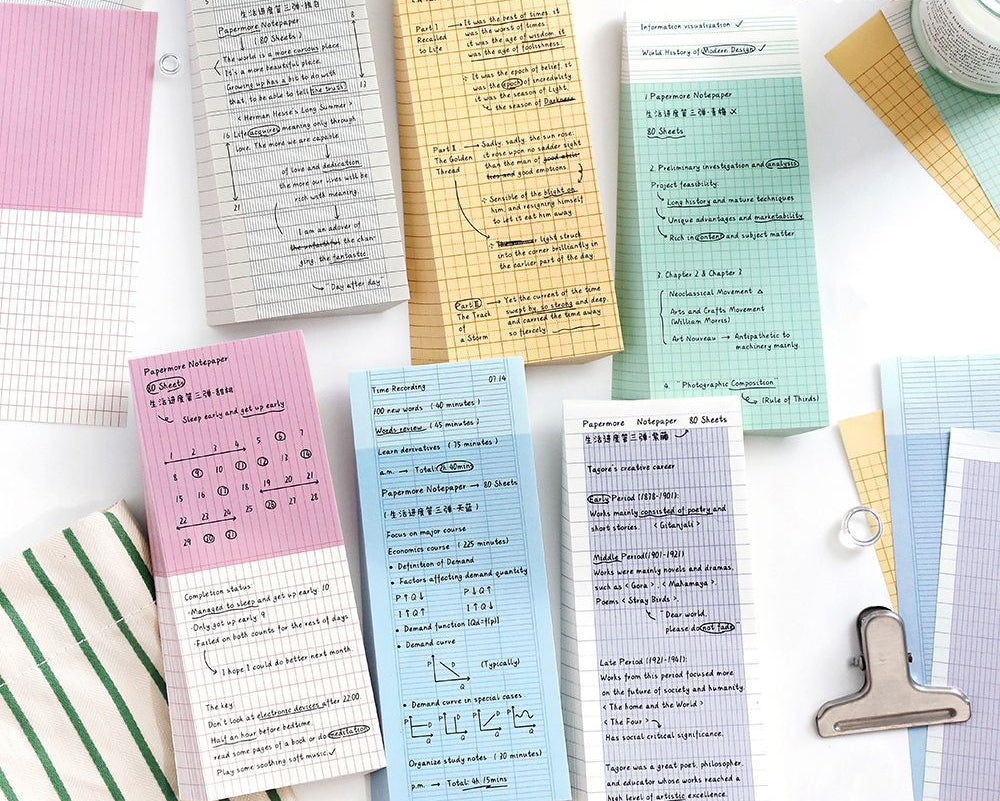 生活進度第三彈·
Papermore Notepaper
( 80 Sheets )
The world is a more curious place.
It's a more beautiful place.
Growing up has a bit to do with
that, to be able to tell the truth
< Herman Hesse's Long Summer >
16 Life acquires meaning only through
love. The more we are capable
of love and dedication.
the more our lives will be
rich with meaning.
I am an adover of
the chan-
ging, the fantastic.
"Day after day
8
13
21
Part 1 → It was the best of times. it
Recalled was the worst of times
to Life it was the age of wisdom. it
was the age of foolishness.
It was the epoch of belief, it
was the epoch of incredulity
it was the season of Light,
the season of Darkness
Part Ⅱ → Sadly, sadly, the sun rose:
The Golden it rose upon no sadder sight
Thread than the man of good abili-
ties and good emotions.
Sensible of the blight on
him, and resigning himself
to let it eat him away.
light struck
into the corner brilliantly in
the earlier part of the day
Part Ⅲ → Yet the current of the time
The Track swept by so strong and deep.
of and carried the time away
a Storm so fiercely.
Information visualization ✓
World History of Modern Design ✓
1 Papermore Notepaper
生活進度第三彈·青梅 ×
80 Sheets
2. Preliminary investigation and analysis
Project feasibility:
Long history and mature techniques
Unique advantages and marketability
Rich in content and subject matter
3. Chapter 2 & Chapter 3
Neoclassical Movement △
Arts and Crafts Movement
(William Morris)
Art Nouveau → Antipathetic to
machinery mainly.
4. "Photographic Composition"
(Rule of Thirds)
Papermore Notepaper
80 Sheets
生活進度第三彈·
Sleep early and get up early
1 2 3 4 5 6 7
8 9 10 11 12 13 14
15 16 17 18 19 20 21
22 23 24 25 26 27 28
29 30 31
Completion status:
·Managed to sleep and get up early 10
·Only got up early 9
·Failed on both counts for the rest of days
I hope I could do better next month.
The key:
Don't look at electronic devices after 22:00.
Half an hour before bedtime.
read some pages of a book or do meditation
Play some soothing soft music. ✓
Time Recording 07.14
100 new words ( 40 minutes )
Words review ( 45 minutes )
Learn derivatives ( 75 minutes )
a.m. → Total: 2h 40mins
Papermore Notepaper → 80 Sheets
( 生活進度第三彈·天藍 )
Focus on major course
Economics course ( 225 minutes)
• Definition of Demand
• Factors affecting demand quantity
P↑Q↓ P↓Q↑
I↑Q↑ I↑Q↓
• Demand function [Qd=f(p)]
• Demand curve
P D (Typically)
Q
• Demand curve in special cases
P D P D P D P D
Q Q Q Q
Organize study notes ( 30 minutes)
p.m. → Total: 4h 15mins
Papermore Notepaper 80 Sheets
生活進度第三彈·紫藤
Tagore's creative career
Early Period (1878-1901):
Works mainly consisted of poetry and
short stories. < Gitanjali >
Middle Period(1901-1921)
Works were mainly novels and dramas,
such as < Gora >. < Mahamaya >.
Poems < Stray Birds >.
"Dear world,
please do not fade
Late Period (1921-1941):
Works from this period focused more
on the future of society and humanity.
< The home and the World >
< The Four >
Has social critical significance.
Tagore was a great poet, philosopher,
and educator whose works reached a
high level of artistic excellence.